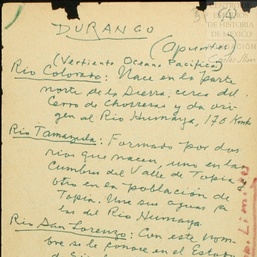 DURANGO
(Apuntes
(Vertiente Oceano Pacifico)
Rio Colorado: Nace en la parte
norte de la Sierra, cerca del
Cerro de Chorreras y da ori-
gen al Rio Humaya, 170 Kmts
Rio Tamazula: Formado por dos
rios que nacen, uno en las
Cumbres del Valle de Topia,
otro en la población de
Topia. Une sus aguas a
las del Rio Humaya
Rio San Lorenzo: Con este nom-
bre se le conoce en el Estado
ESTUDIOS
DE HISTORIA
DE MEXICO